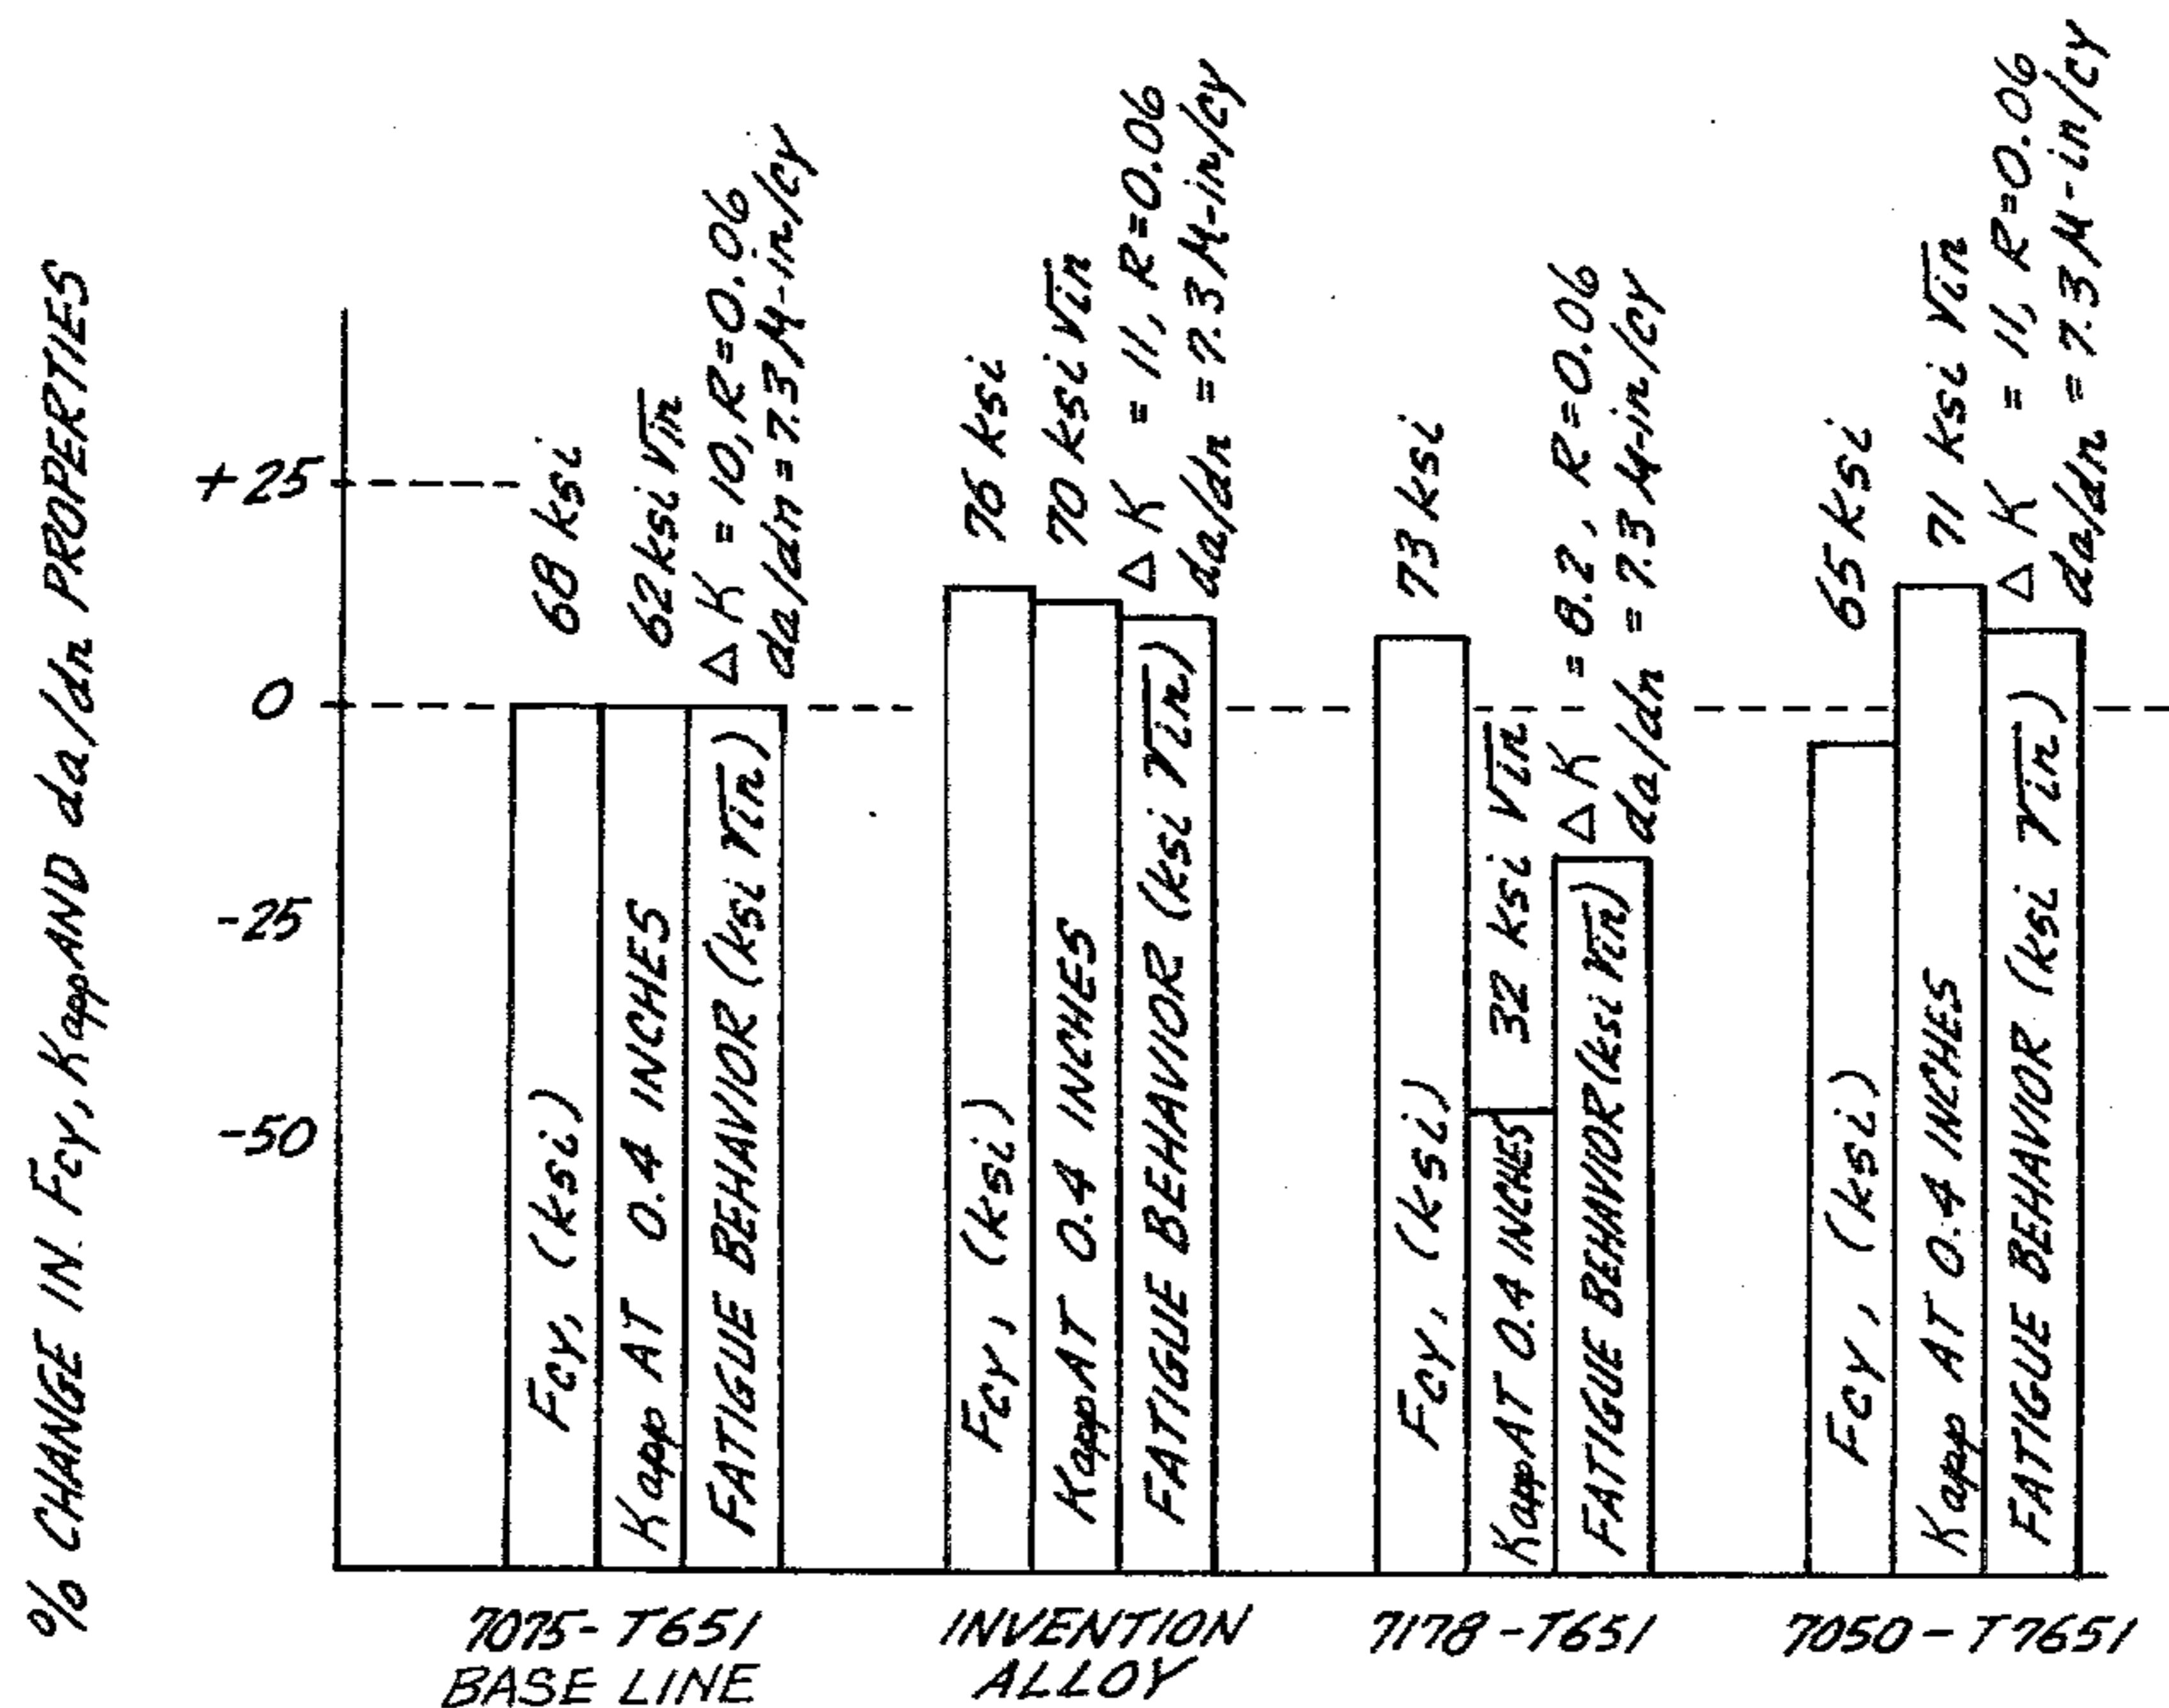 % CHANGE IN Fcy, Kapp AND da/dn PROPERTIES
+25
0
-25
-50
68 ksi
62 ksi √in
Δ K = 10, R=0.06
da/dn = 7.3 μ-in/cy
Fcy, (ksi)
Kapp AT 0.4 INCHES
FATIGUE BEHAVIOR (ksi √in)
7075-T651
BASE LINE
76 ksi
70 ksi √in
Δ K = 11, R=0.06
da/dn = 7.3 μ-in/cy
Fcy, (ksi)
Kapp AT 0.4 INCHES
FATIGUE BEHAVIOR (ksi √in)
INVENTION
ALLOY
73 ksi
32 ksi √in
Δ K = 8.2, R=0.06
da/dn = 7.3 μ-in/cy
Fcy, (ksi)
Kapp AT 0.4 INCHES
FATIGUE BEHAVIOR (ksi √in)
7178-T651
65 ksi
71 ksi √in
Δ K = 11, R=0.06
da/dn = 7.3 μ-in/cy
Fcy, (ksi)
Kapp AT 0.4 INCHES
FATIGUE BEHAVIOR (ksi √in)
7050-T7651